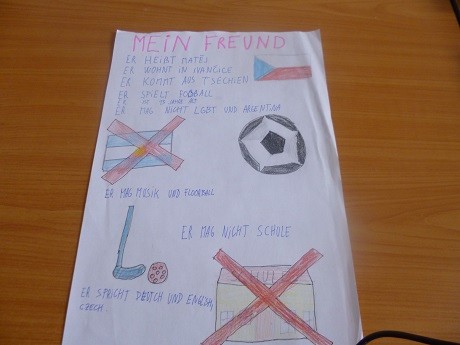 MEIN FREUND
ER HEIßT MATĚJ
ER WOHNT IN IVANČICE
ER KOMMT AUS TSECHIEN
ER SPIELT FOßBALL
ER IST 13 JAHRE ALT
ER MAG NICHT LGBT UND ARGENTINA
ER MAG MUSIK UND FLOORBALL
ER MAG NICHT SCHULE
ER SPRICHT DEUTCH UND ENGLISH,
CZECH